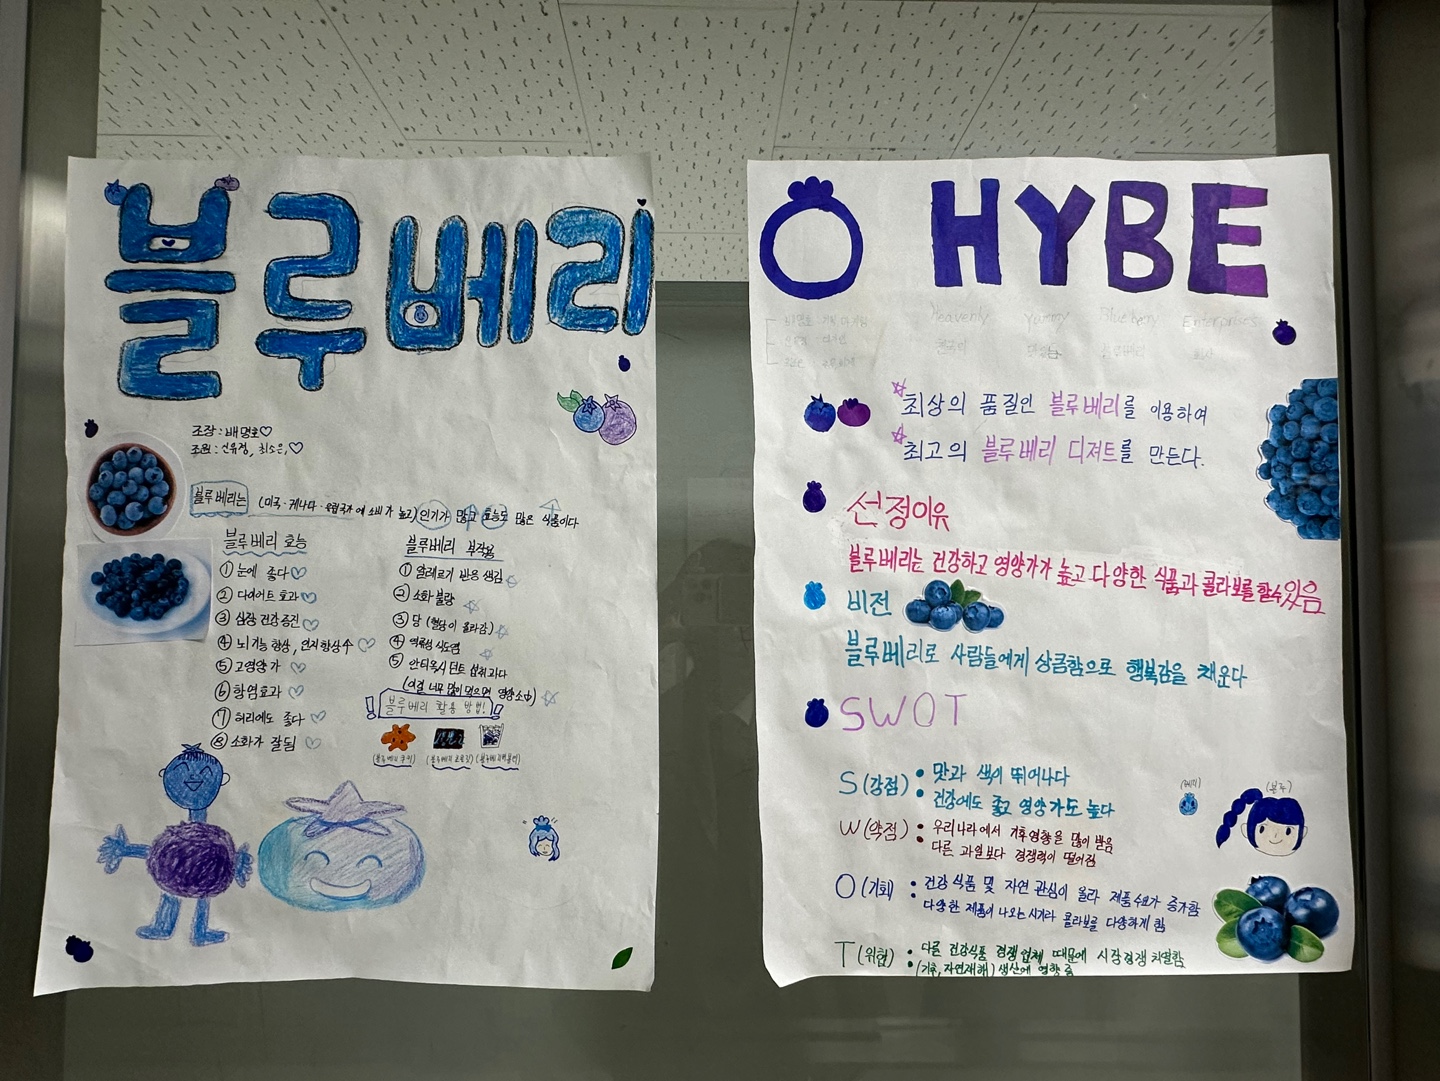 블루베리
조장 : 배명호♡
조원 : 신유정, 최소은,♡
블루베리는 (미국·캐나다·유럽국가에 소비가 높고) 인기가 많고 효능도 많은 식품이다
블루베리 효능
① 눈에 좋다♡
② 다이어트 효과♡
③ 심장 건강 증진♡
④ 뇌기능 향상, 인지향상↑♡
⑤ 고영양가 ♡
⑥ 항염효과 ♡
⑦ 허리에도 좋다 ♡
⑧ 소화가 잘됨 ♡
블루베리 부작용
① 알레르기 반응 생김☆
② 소화불량 ☆
③ 당 (혈당이 올라감)☆
④ 역류성 식도염 ☆
⑤ 안티옥시던트 섭취과다
(이걸 너무 많이 먹으면 영양소↓) ☆
!블루베리 활용 방법!
(블루베리 쿠키)
HYBE
Heavenly Yummy Blueberry Enterprises
☆최상의 품질인 블루베리를 이용하여
☆최고의 블루베리 디져트를 만든다.
선정이유
블루베리는 건강하고 영양가가 높고 다양한 식품과 콜라보를 할수있음
비전
블루베리로 사람들에게 상큼함으로 행복감을 채운다
SWOT
S (강점) • 맛과 색이 뛰어나다
• 건강에도 좋고 영양가도 높다
W (약점) • 우리나라에서 기후영향을 많이 받음
• 다른 과일보다 경쟁력이 떨어짐
O (기회) • 건강식품 및 자연 관심이 올라 제품수요가 증가함
다양한 제품이 나오는 시기라 콜라보를 다양하게 함
T (위협) • 다른 건강식품 경쟁업체 때문에 시장경쟁 치열함
• (기후, 자연재해) 생산에 영향 줌
(베리)
(블루)